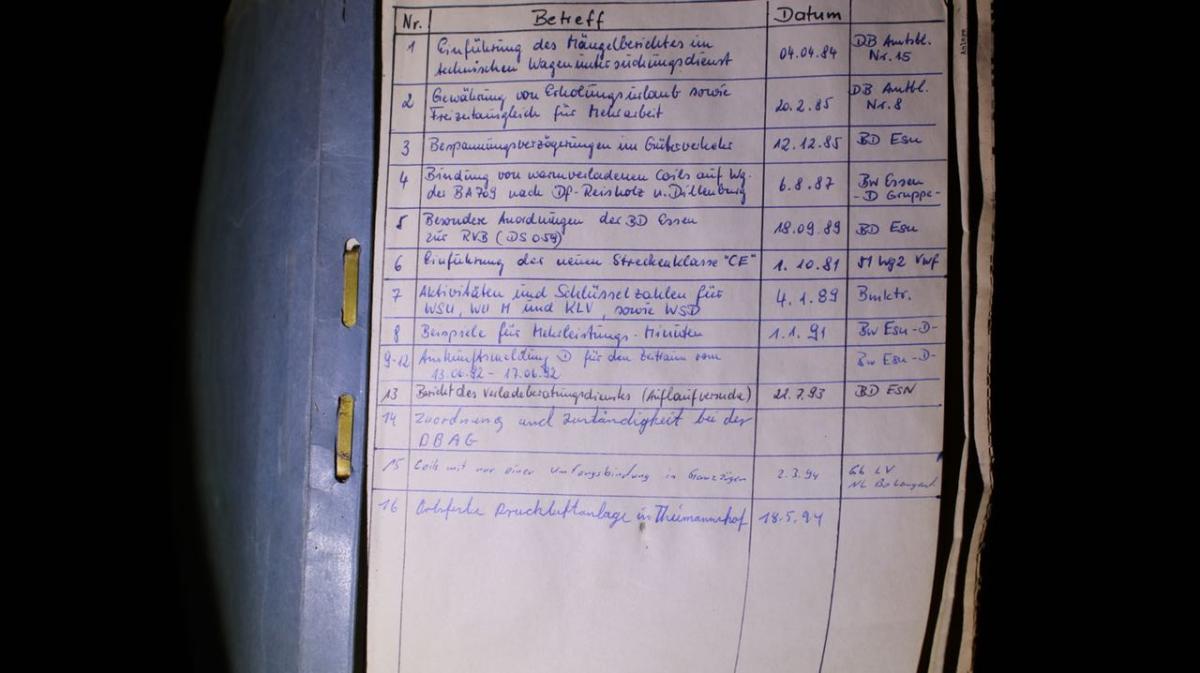 Nr. Betreff Datum
1 Einführung des Mängelberichtes im
technischen Wagenuntersuchungsdienst 04.04.84 DB Amtsbl.
Nr. 15
2 Gewährung von Erholungsurlaub sowie
Freizeitausgleich für Mehrarbeit 20.2.85 DB Amtbl.
Nr. 8
3 Bespannungsverzögerungen im Güterverkehr 12.12.85 BD Esn
4 Bindung von warmverladenen Coils auf Wg.
der BA 709 nach Dp-Reisholz u. Dillenburg 6.8.87 Bw Essen
- D Gruppe -
5 Besondere Anordnungen der BD Essen
zur RVB (DS 059) 18.09.89 BD Esn
6 Einführung der neuen Streckenklasse "CE" 1.10.81 Vwf
7 Aktivitäten und Schlüsselzahlen für
WSU, WU M und KLV, sowie WSD 4.1.89
8 Beispiele für Mehrleistungs-Minuten 1.1.91 Bw Esn -D-
9-12 für den Zeitraum vom
13.06.92 - 17.06.92 Bw Esn -D-
13 Bericht des Verladeberatungsdienstes (Auflaufversuche) 21.7.93 BD ESN
14 Zuordnung und Zuständigkeit bei der
DBAG
15 Coils mit nur einer Umfangsbindung in Ganzzügen 2.3.94
16 Ortsfeste Druckluftanlage in 18.5.94
Anlage